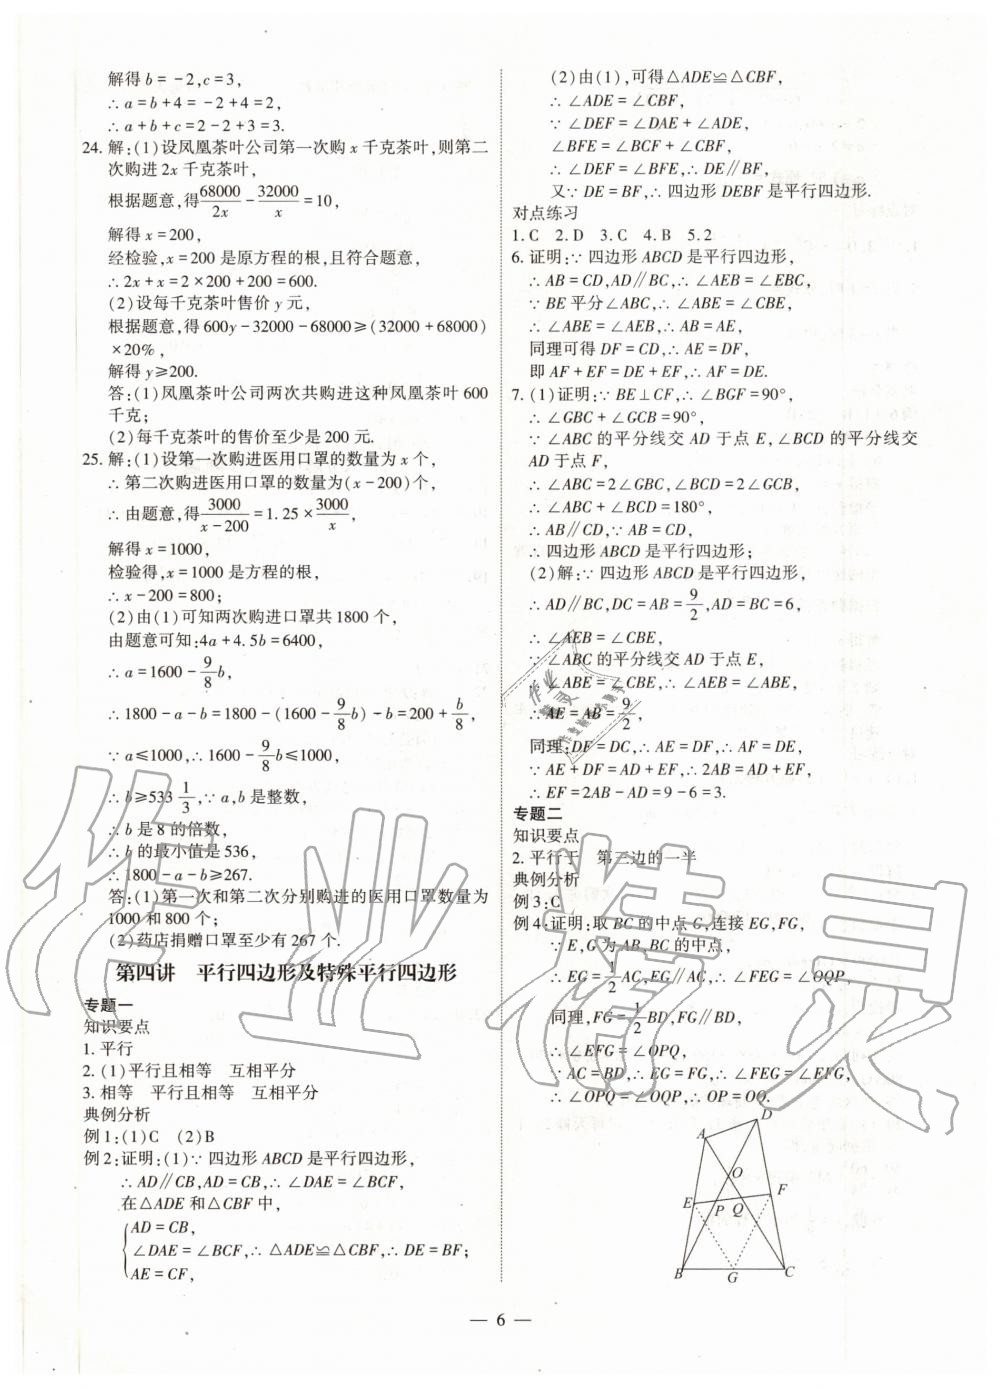 解得b=-2,c=3,
∴a=b+4=-2+4=2,
∴a+b+c=2-2+3=3.
24.解:(1)设凤凰茶叶公司第一次购x千克茶叶,则第二
次购进2x千克茶叶,
根据题意,得68000/2x-32000/x=10,
解得x=200,
经检验,x=200是原方程的根,且符合题意,
∴2x+x=2×200+200=600.
(2)设每千克茶叶售价y元,
根据题意,得600y-32000-68000≥(32000+68000)
×20%,
解得y≥200.
答:(1)凤凰茶叶公司两次共购进这种凤凰茶叶600
千克;
(2)每千克茶叶的售价至少是200元.
25.解:(1)设第一次购进医用口罩的数量为x个,
∴第二次购进医用口罩的数量为(x-200)个,
∴由题意,得3000/(x-200)=1.25×3000/x,
解得x=1000,
检验得,x=1000是方程的根,
∴x-200=800;
(2)由(1)可知两次购进口罩共1800个,
由题意可知:4a+4.5b=6400,
∴a=1600-9/8b,
∴1800-a-b=1800-(1600-9/8b)-b=200+b/8,
∵a≤1000,∴1600-9/8b≤1000,
∴b≥533 1/3,∵a,b是整数,
∴b是8的倍数,
∴b的最小值是536,
∴1800-a-b≥267.
答:(1)第一次和第二次分别购进的医用口罩数量为
1000和800个;
(2)药店捐赠口罩至少有267个.
第四讲 平行四边形及特殊平行四边形
专题一
知识要点
1.平行
2.(1)平行且相等 互相平分
3.相等 平行且相等 互相平分
典例分析
例1:(1)C (2)B
例2:证明:(1)∵四边形ABCD是平行四边形,
∴AD∥CB,AD=CB,∴∠DAE=∠BCF,
在△ADE和△CBF中,
AD=CB,
∠DAE=∠BCF,∴△ADE≌△CBF,∴DE=BF;
AE=CF,
(2)由(1),可得△ADE≌△CBF,
∴∠ADE=∠CBF,
∵∠DEF=∠DAE+∠ADE,
∠BFE=∠BCF+∠CBF,
∴∠DEF=∠BFE,∴DE∥BF,
又∵DE=BF,∴四边形DEBF是平行四边形.
对点练习
1.C 2.D 3.C 4.B 5.2
6.证明:∵四边形ABCD是平行四边形,
∴AB=CD,AD∥BC,∴∠AEB=∠EBC,
∵BE平分∠ABC,∴∠ABE=∠CBE,
∴∠ABE=∠AEB,∴AB=AE,
同理可得DF=CD,∴AE=DF,
即AF+EF=DE+EF,∴AF=DE.
7.(1)证明:∵BE⊥CF,∴∠BGF=90°,
∴∠GBC+∠GCB=90°,
∵∠ABC的平分线交AD于点E,∠BCD的平分线交
AD于点F,
∴∠ABC=2∠GBC,∠BCD=2∠GCB,
∴∠ABC+∠BCD=180°,
∴AB∥CD,∵AB=CD,
∴四边形ABCD是平行四边形;
(2)解:∵四边形ABCD是平行四边形,
∴AD∥BC,DC=AB=9/2,AD=BC=6,
∴∠AEB=∠CBE,
∵∠ABC的平分线交AD于点E,
∴∠ABE=∠CBE,∴∠AEB=∠ABE,
∴AE=AB=9/2,
同理:DF=DC,∴AE=DF,∴AF=DE,
∵AE+DF=AD+EF,∴2AB=AD+EF,
∴EF=2AB-AD=9-6=3.
专题二
知识要点
2.平行于 第三边的一半
典例分析
例3:C
例4:证明:取BC的中点G,连接EG,FG,
∵E,G为AB,BC的中点,
∴EG=1/2AC,EG∥AC,∴∠FEG=∠OQP,
同理,FG=1/2BD,FG∥BD,
∴∠EFG=∠OPQ,
∵AC=BD,∴EG=FG,∴∠FEG=∠EFG,
∴∠OPQ=∠OQP,∴OP=OQ.
A D
O
E P Q F
B G C
— 6 —
作业精灵